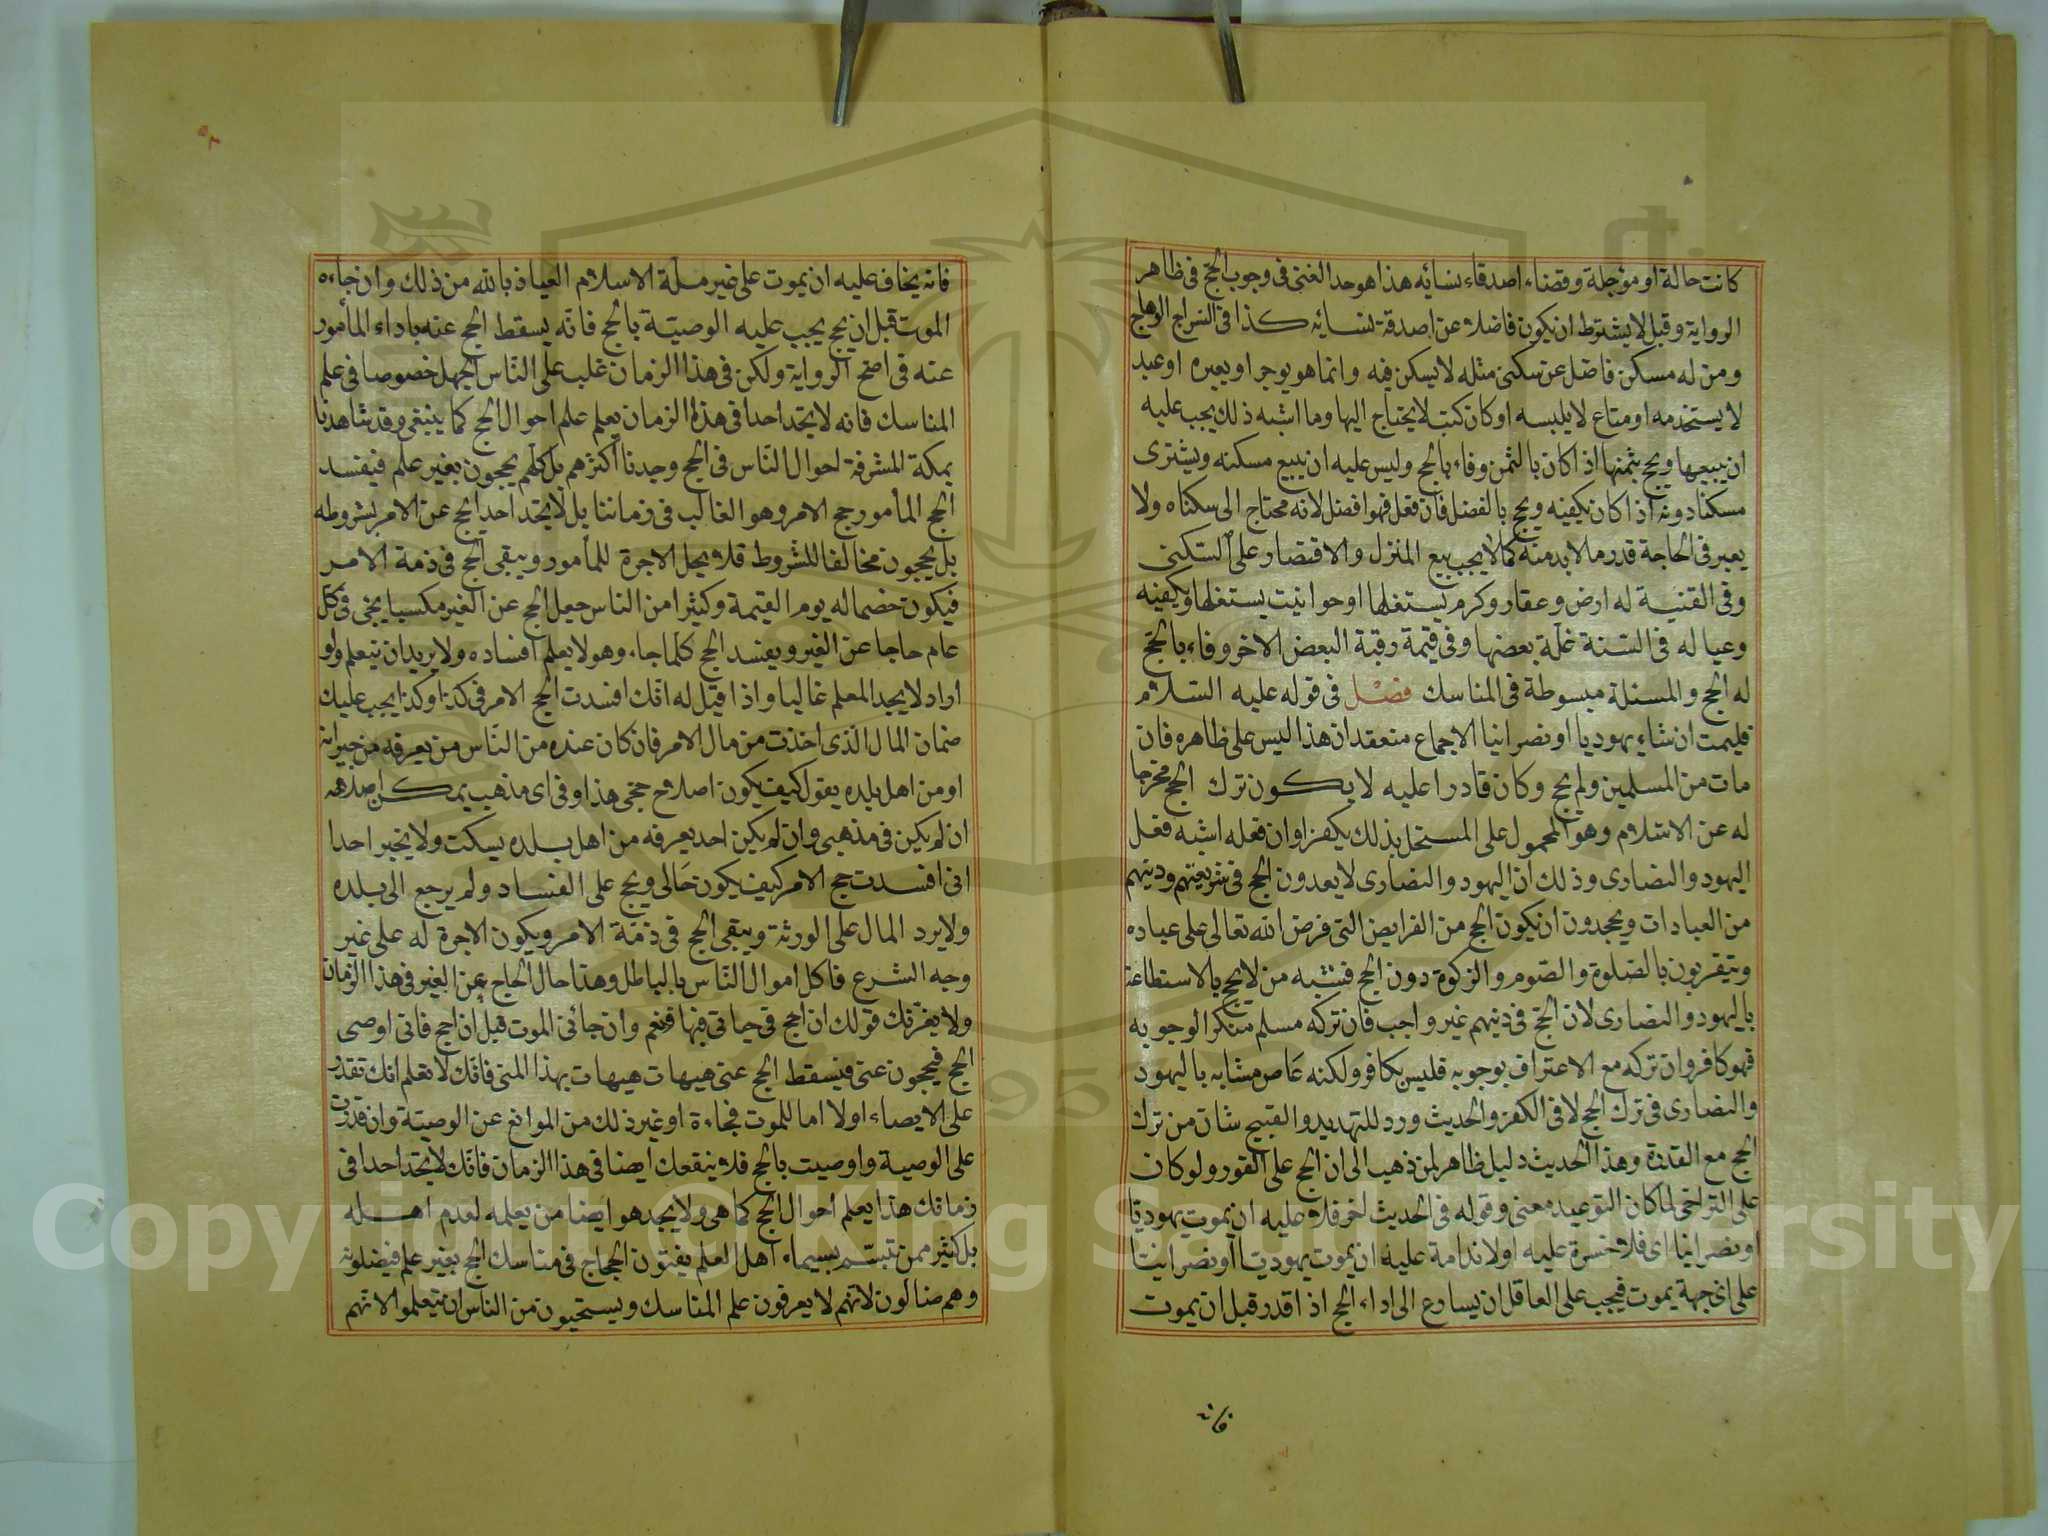 كانت حالة او مؤجلة وقضاء اصدقاء نسائه هذا هو حد الغنى فى وجوب الحج فى ظاهر
الرواية وقيل لا يشترط ان يكون فاضلا عن اصدقة نسائه كذا فى السراج الوهاج
ومن له مسكن فاضل عن سكنى مثله لا يسكن فيه وانما هو يوجر او يعيره او عبد
لا يستخدمه او متاع لا يلبسه او كان كتبه لا يحتاج اليها وما اشبه ذلك يجب عليه
ان يبيعها ويحج بثمنها اذا كان بالثمن وفاء بالحج وليس عليه ان يبيع مسكنه ويشترى
مسكنا دونه اذا كان يكفيه ويحج بالفضل فان فعل فهو افضل لانه محتاج الى سكناه ولا
يعبر فى الحاجة قدر ما لا بد منه كما لا يجب بيع المنزل والاقتصار على السكنى
وفى القنية له ارض وعقار وكرم يستغلها او حوانيت يستغلها ويكفيه
وعياله فى السنة غلة بعضها وفى قيمة رقبة البعض الاخر وفاء بالحج
له الحج والمسئلة مبسوطة فى المناسك فصل فى قوله عليه السلام
فليمت ان شاء يهوديا او نصرانيا الاجماع منعقد ان هذا ليس على ظاهره فان
مات من المسلمين ولم يحج وكان قادرا عليه لا يكون ترك الحج مخرجا
له عن الاسلام وهو المحمول على المستحل بذلك يكفر او ان فعله اشبه فعل
اليهود والنصارى وذلك ان اليهود والنصارى لا يعدون الحج فى شريعتهم ودينهم
من العبادات ويجحدون ان يكون الحج من الفرايض التى فرض الله تعالى على عباده
ويتقربون بالصلوة والصوم والزكوة دون الحج فشبه من لا يحج بالاستطاعة
باليهود والنصارى لان الحج فى دينهم غير واجب فان تركه مسلم منكرا لوجوبه
فهو كافر وان تركه مع الاعتراف بوجوبه فليس بكافر ولكنه عاص مشابه باليهود
والنصارى فى ترك الحج لا فى الكفر والحديث ورد للتهديد والقبيح شان من ترك
الحج مع القدرة وهذا الحديث دليل ظاهر لمن ذهب الى ان الحج على الفور ولو كان
على التراخى لما كان التوعيد معنى وقوله فى الحديث لخر فلا عليه ان يموت يهوديا
او نصرانيا اى فلا خسرة عليه او لا ندامة عليه ان يموت يهوديا او نصرانيا
على اى جهة يموت فيجب على العاقل ان يسارع الى اداء الحج اذا قدر قبل ان يموت
فانه
فانه يخاف عليه ان يموت على غير ملة الاسلام العياذ بالله من ذلك وان جاءه
الموت قبل ان يحج يجب عليه الوصية بالحج فانه يسقط الحج عنه باداء المأمور
عنه فى اصح الرواية ولكن فى هذا الزمان غلب على الناس الجهل خصوصا فى علم
المناسك فانه لا يجد احدا فى هذا الزمان يعلم علم احوال الحج كما ينبغى وقد شاهدنا
بمكة المشرفة احوال الناس فى الحج وجدنا اكثرهم بل كلهم يحجون بغير علم فيفسد
الحج المأمور حج الامر وهو الغالب فى زماننا بل لا يجد احد الحج عن الامر بشروطه
بل يحجون مخالفا للشروط فلا يحل الاجرة للمأمور ويبقى الحج فى ذمة الامر
فيكون خصما له يوم القيمة وكثيرا من الناس جعل الحج عن الغير مكسبا يجى فى كل
عام حاجا عن الغير ويفسد الحج كلما جاء وهو لا يعلم افساده ولا يريد ان يتعلم ولو
اراد لا يجد المعلم غالبا واذا قيل له انك افسدت الحج الامر فى كذا وكذا يجب عليك
ضمان المال الذى اخذت من مال الامر فان كان عنده من الناس من يعرفه من جيرانه
او من اهل بلده يقول كيف يكون اصلاح حجى هذا وفى اى مذهب يمكن اصلاحه
ان لم يكن فى مذهبى وان لم يكن احد يعرفه من اهل بلده يسكت ولا يخبر احدا
انى افسدت حج الامر كيف يكون حالى ويحج على الفساد ولم يرجع الى بلده
ولا يرد المال على الورثة ويبقى الحج فى ذمة الامر ويكون الاجرة له على غير
وجه الشرع فاكل اموال الناس بالباطل وهذا حال الحاج عن الغير فى هذا الزمان
ولا يغرنك قولك ان احج فى حياتى فبها فنعم وان جائنى الموت قبل ان احج فانى اوصى
الحج فيحجون عنى فيسقط الحج عنى هيهات هيهات بهذا المنى فانك لا تعلم انك تقدر
على الايصاء او لا اما للموت فجاءة او غير ذلك من الموانع عن الوصية وان قدرت
على الوصية واوصيت بالحج فلا ينفعك ايضا فى هذا الزمان فانك لا تجد احدا فى
زمانك هذا يعلم احوال الحج كما هى ولا يجد هو ايضا من يعلمه لعدم اهله
بل كثير ممن تبسم بسيماء اهل العلم يفتون الحجاج فى مناسك الحج بغير علم فيضلونه
وهم ضالون لانهم لا يعرفون علم المناسك ويستحيون من الناس ان يتعلموا لانهم
Copyright © King Saud University